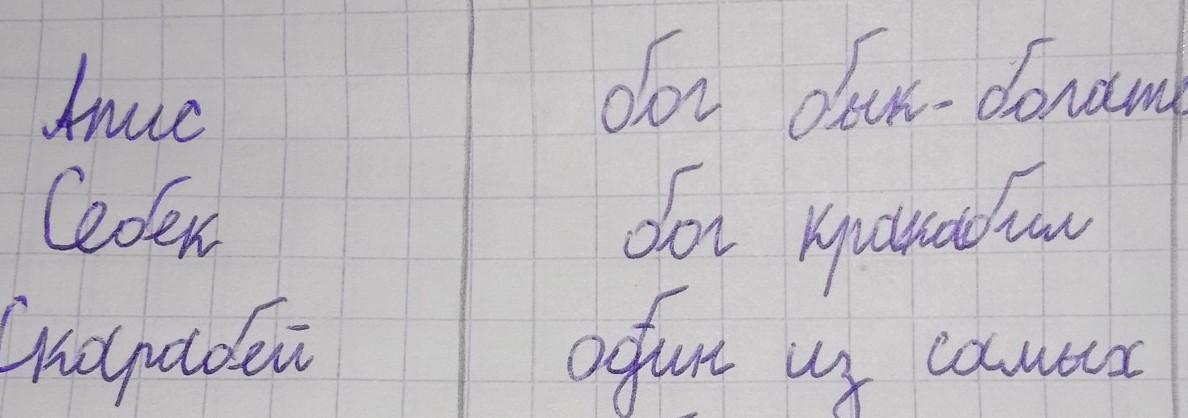 Апис бог бык - богат
Себек бог кракадил
Скарабей один из самых